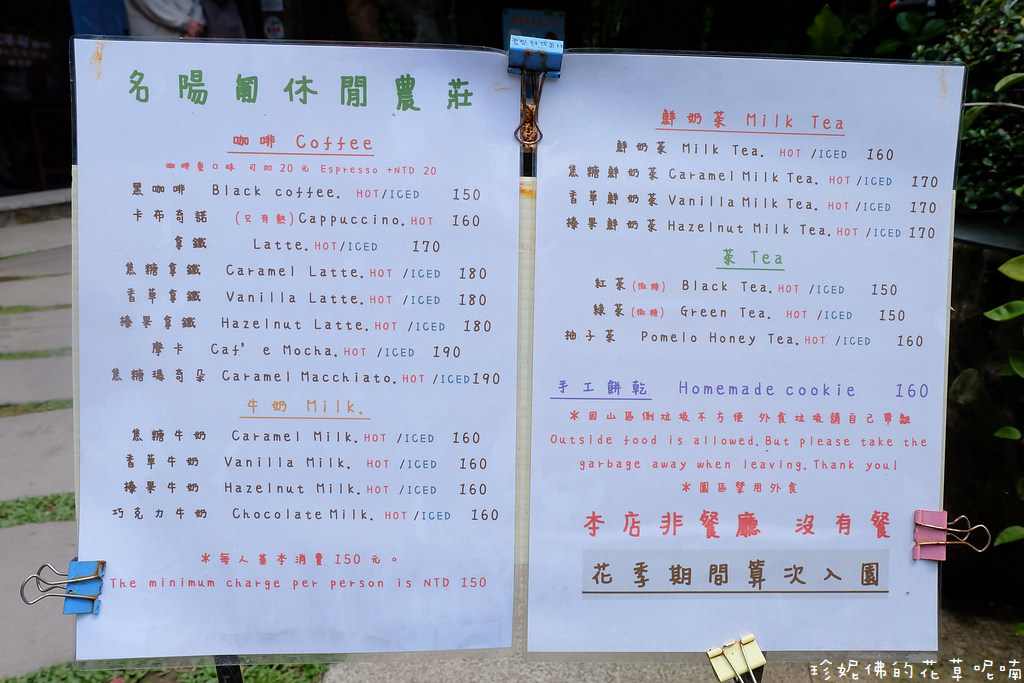 名陽匍休閒農莊
咖啡 Coffee
咖啡重口味 可加20元 Espresso +NTD 20
黑咖啡 Black coffee. HOT/ICED 150
卡布奇諾 (只有熱) Cappuccino. HOT 160
拿鐵 Latte. HOT/ICED 170
焦糖拿鐵 Caramel Latte. HOT /ICED 180
香草拿鐵 Vanilla Latte. HOT /ICED 180
榛果拿鐵 Hazelnut Latte. HOT /ICED 180
摩卡 Caf'e Mocha. HOT /ICED 190
焦糖瑪奇朵 Caramel Macchiato. HOT /ICED 190
牛奶 Milk.
焦糖牛奶 Caramel Milk. HOT /ICED 160
香草牛奶 Vanilla Milk. HOT /ICED 160
榛果牛奶 Hazelnut Milk. HOT /ICED 160
巧克力牛奶 Chocolate Milk. HOT /ICED 160
＊每人基本消費150元。
The minimum charge per person is NTD 150
鮮奶茶 Milk Tea
鮮奶茶 Milk Tea. HOT /ICED 160
焦糖鮮奶茶 Caramel Milk Tea. HOT /ICED 170
香草鮮奶茶 Vanilla Milk Tea. HOT /ICED 170
榛果鮮奶茶 Hazelnut Milk Tea. HOT /ICED 170
茶 Tea
紅茶(微糖) Black Tea. HOT /ICED 150
綠茶(微糖) Green Tea. HOT /ICED 150
柚子茶 Pomelo Honey Tea. HOT /ICED 160
手工餅乾 Homemade cookie 160
＊因山區倒垃圾不方便 外食垃圾請自己帶離
Outside food is allowed. But please take the
garbage away when leaving. Thank you!
＊園區禁用外食
本店非餐廳 沒有餐
花季期間算次入園
珍妮佛的花草呢喃